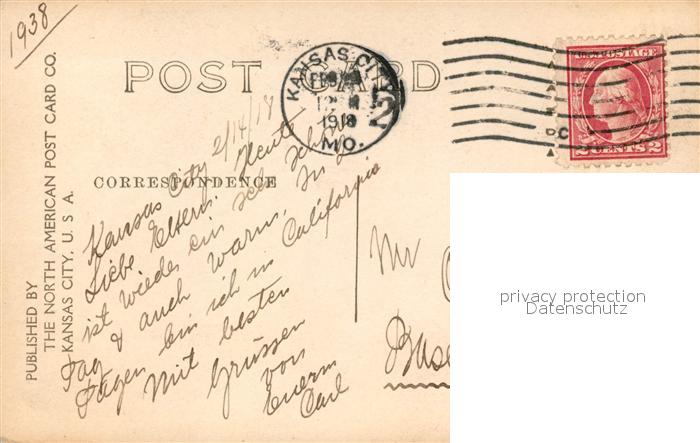 1938
POST CARD
KANSAS CITY
FEB
12 M
1918
MO.
2
U.S. POSTAGE
2 CENTS 2
PUBLISHED BY
THE NORTH AMERICAN POST CARD CO.
KANSAS CITY, U. S. A.
CORRESPONDENCE
Kansas City 2/14/18
Liebe Eltern. Heute
ist wieder ein sehr schön
Tag & auch warm, In 2
Tagen bin ich in California
Mit besten
Grüssen
von
Euerm
Carl
Mr
Base
privacy protection
Datenschutz